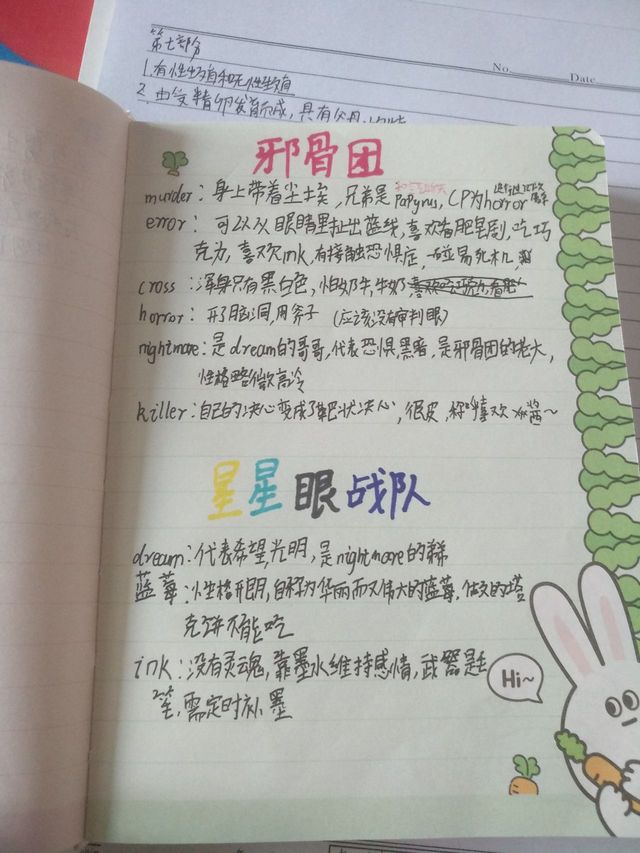 第七部分
No. Date
1.有性生殖和无性生殖
2.由受精卵发育而成,具有父母
邪骨团
murder:身上带着尘埃,兄弟是papyrus,CP为horror
error:可以从眼睛里扯出蓝线,喜欢看肥皂剧,吃巧
克力,喜欢ink,有接触恐惧症,一碰易死机
cross:浑身只有黑白色,怕奶牛,牛奶
horror:开了脑洞,用斧子(应该没有审判眼)
nightmare:是dream的哥哥,代表恐惧,黑暗,是邪骨团的老大,
性格略微高冷
killer:自己的决心变成了靶状决心,很皮,称喜欢 酱~
星星眼战队
dream:代表希望,光明,是nightmare的弟弟
蓝莓:性格开朗,自称为华丽而又伟大的蓝莓,做的塔
克饼不能吃
ink:没有灵魂,靠墨水维持感情,武器是毛
笔,需定时补墨
Hi~